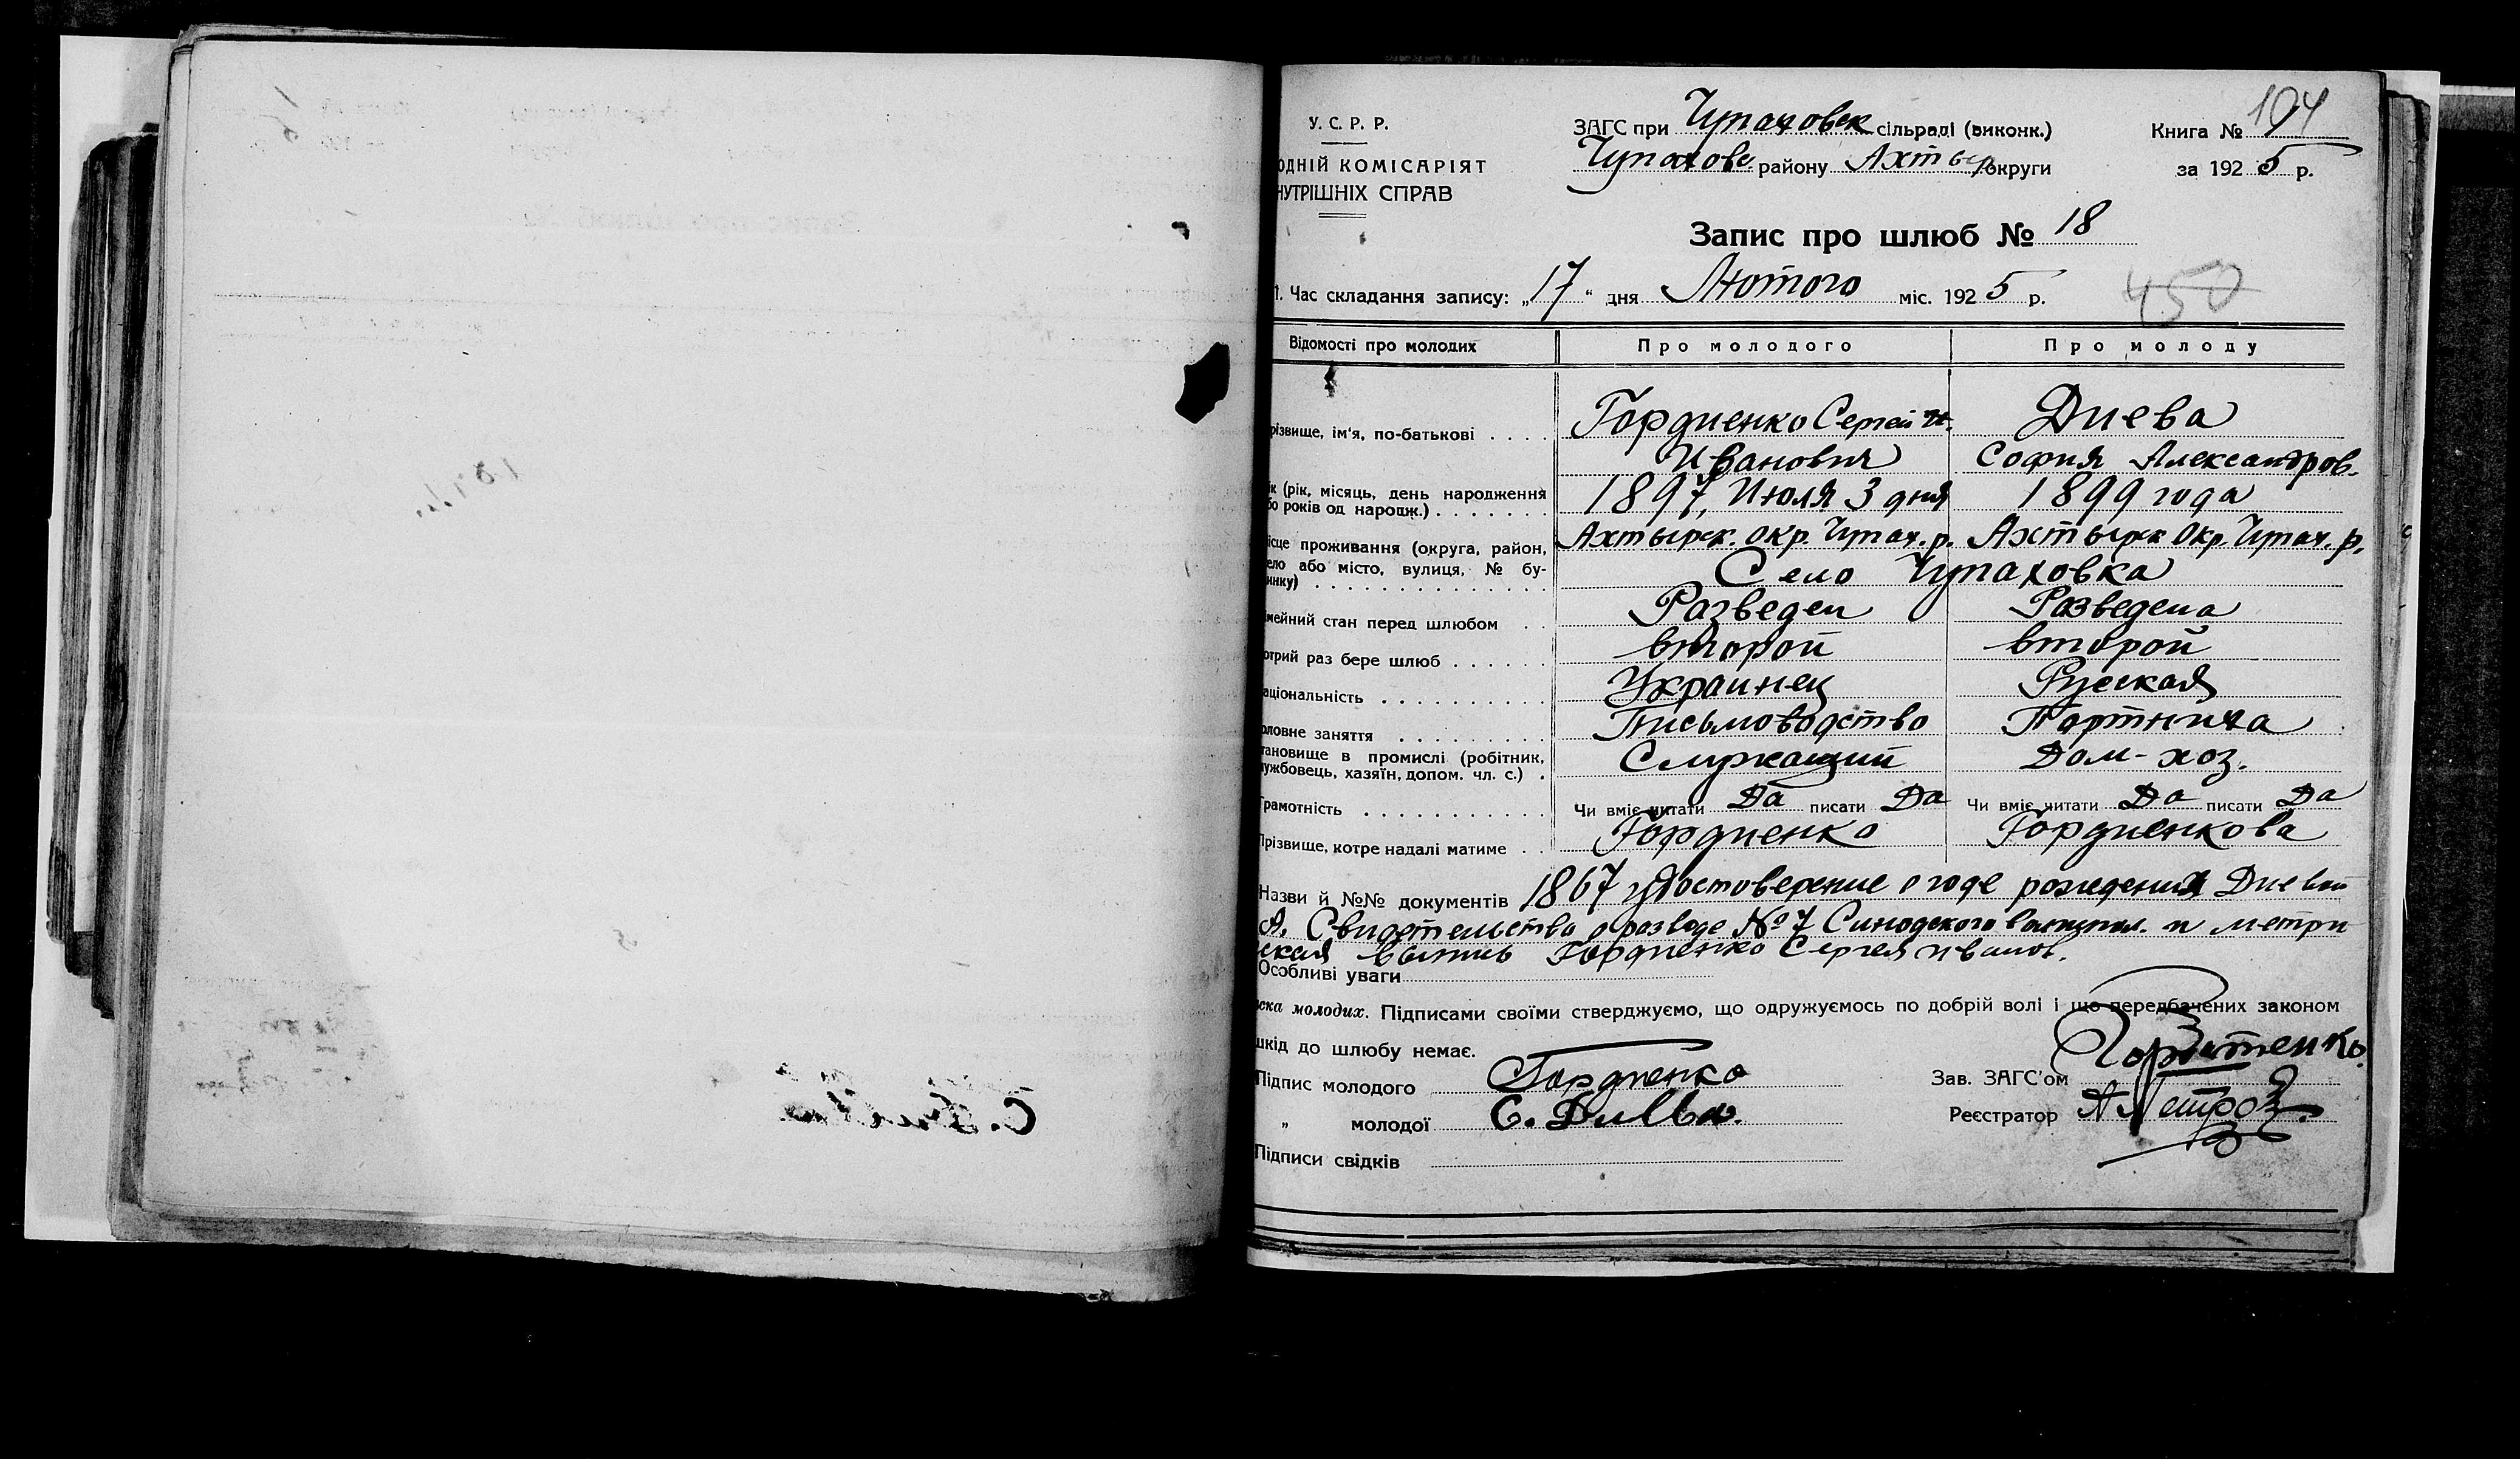 У. С. Р. Р.
ОДНІЙ КОМІСАРІЯТ
НУТРІШНІХ СПРАВ
ЗАГС при Чупаховск сільраді (виконк.)
Чупахове району Ахтыр округи
Книга № 194
за 1925 р.
Запис про шлюб № 18
1. Час складання запису: „17“ дня Лютого міс. 1925 р.
450
Відомості про молодих Про молодого Про молоду
різвище, ім'я, по-батькові . . . . Гордиенко Сергей Днева
Иванович София Александров.
ік (рік, місяць, день народження 1897, Июля 3 дня 1899 года
бо років од народж.) . . . . . . .
ісце проживання (округа, район, Ахтырск. Окр. Чупах. р. Ахтырск Окр. Чупах. р.
ело або місто, вулиця, № бу- Село Чупаховка
инку) . . . . . . . . . . . . . .
імейний стан перед шлюбом . . Разведен Разведена
отрий раз бере шлюб . . . . . . второй второй
аціональність . . . . . . . . . . Украинец Русская
оловне заняття . . . . . . . . . Письмоводство Портниха
тановище в промислі (робітник, Служащий Дом-хоз.
ужбовець, хазяїн, допом. чл. с.) .
Грамотність . . . . . . . . . . . Чи вміє читати Да писати Да Чи вміє читати Да писати Да
Прізвище, котре надалі матиме . . Гордиенко Гордиенкова
Назви й №№ документів 1867 удостоверение о годе рождения Дневой
А. Свидетельства о разводе № 7 Синодского и метри
ская выпись Гордиенко Сергея Иванов.
Особливі уваги
иска молодих. Підписами своїми стверджуємо, що одружуємось по добрій волі і що передбачених законом
шкід до шлюбу немає.
Підпис молодого Гордиенко
„ молодої С. Днева.
Підписи свідків
Зав. ЗАГС'ом
Реєстратор А Петров